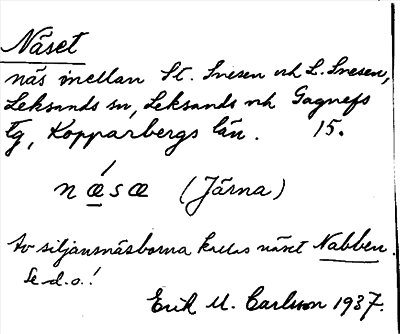 Näset
näs mellan St. Snesen och L. Snesen,
Leksands sn, Leksands och Gagnefs
tg, Kopparbergs län. 15.
næ´sæ (Järna)
Av siljansnäsborna kallas näset Nabben.
Se d.o.!
Erik M. Carlsson 1937.